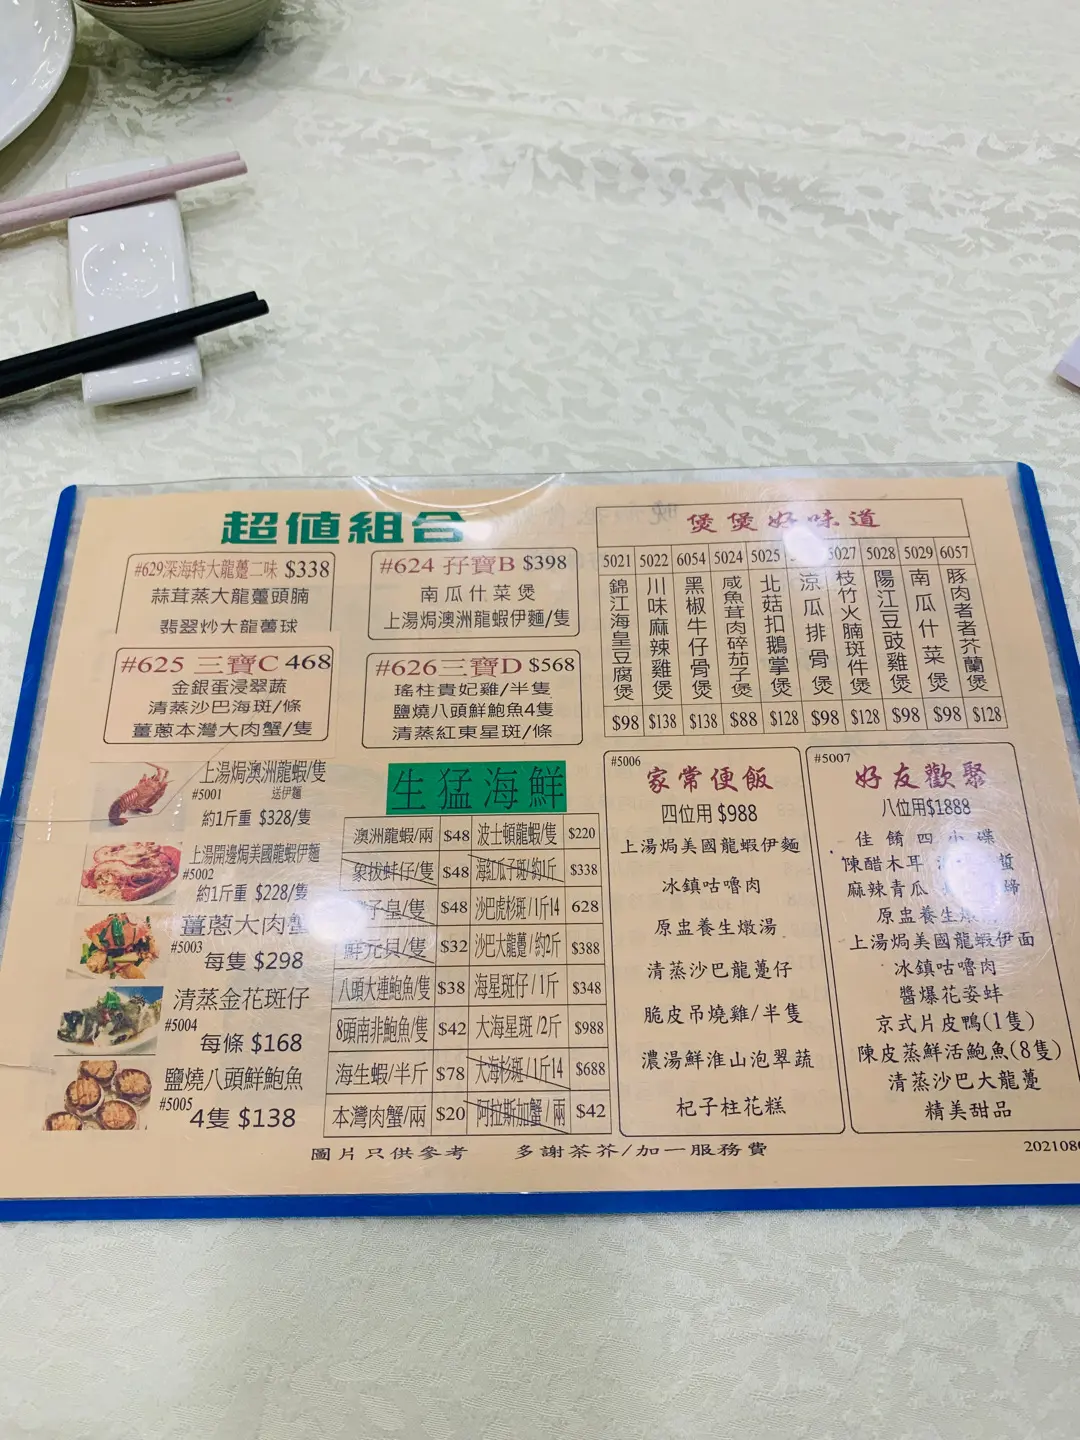 超值組合
#629深海特大龍躉二味 $338
蒜茸蒸大龍躉頭腩
翡翠炒大龍躉球
#624 孖寶B $398
南瓜什菜煲
上湯焗澳洲龍蝦伊麵/隻
#625 三寶C 468
金銀蛋浸翠蔬
清蒸沙巴海斑/條
薑蔥本灣大肉蟹/隻
#626三寶D $568
瑤柱貴妃雞/半隻
鹽燒八頭鮮鮑魚4隻
清蒸紅東星斑/條
煲煲好味道
5021 錦江海皇豆腐煲 $98
5022 川味麻辣雞煲 $138
6054 黑椒牛仔骨煲 $138
5024 咸魚茸肉碎茄子煲 $88
5025 北菇扣鵝掌煲 $128
涼瓜排骨煲 $98
5027 枝竹火腩斑件煲 $128
5028 陽江豆豉雞煲 $98
5029 南瓜什菜煲 $98
6057 豚肉者者芥蘭煲 $128
上湯焗澳洲龍蝦/隻
#5001 送伊麵
約1斤重 $328/隻
上湯開邊焗美國龍蝦伊麵
#5002
約1斤重 $228/隻
薑蔥大肉蟹
#5003
每隻 $298
清蒸金花斑仔
#5004
每條 $168
鹽燒八頭鮮鮑魚
#5005
4隻 $138
生猛海鮮
澳洲龍蝦/兩 $48 波士頓龍蝦/隻 $220
象拔蚌仔/隻 $48 海紅瓜子斑/約1斤 $338
子皇/隻 $48 沙巴虎杉斑/1斤14 628
鮮元貝/隻 $32 沙巴大龍躉/約2斤 $388
八頭大連鮑魚/隻 $38 海星斑仔/1斤 $348
8頭南非鮑魚/隻 $42 大海星斑/2斤 $988
海生蝦/半斤 $78 大海杉斑/1斤14 $688
本灣肉蟹/兩 $20 阿拉斯加蟹/兩 $42
#5006
家常便飯
四位用 $988
上湯焗美國龍蝦伊麵
冰鎮咕嚕肉
原盅養生燉湯
清蒸沙巴龍躉仔
脆皮吊燒雞/半隻
濃湯鮮淮山泡翠蔬
杞子桂花糕
#5007
好友歡聚
八位用$1888
佳餚四小碟
陳醋木耳
麻辣青瓜
原盅養生燉
上湯焗美國龍蝦伊面
冰鎮咕嚕肉
醬爆花姿蚌
京式片皮鴨(1隻)
陳皮蒸鮮活鮑魚(8隻)
清蒸沙巴大龍躉
精美甜品
圖片只供參考 多謝茶芥/加一服務費
202108